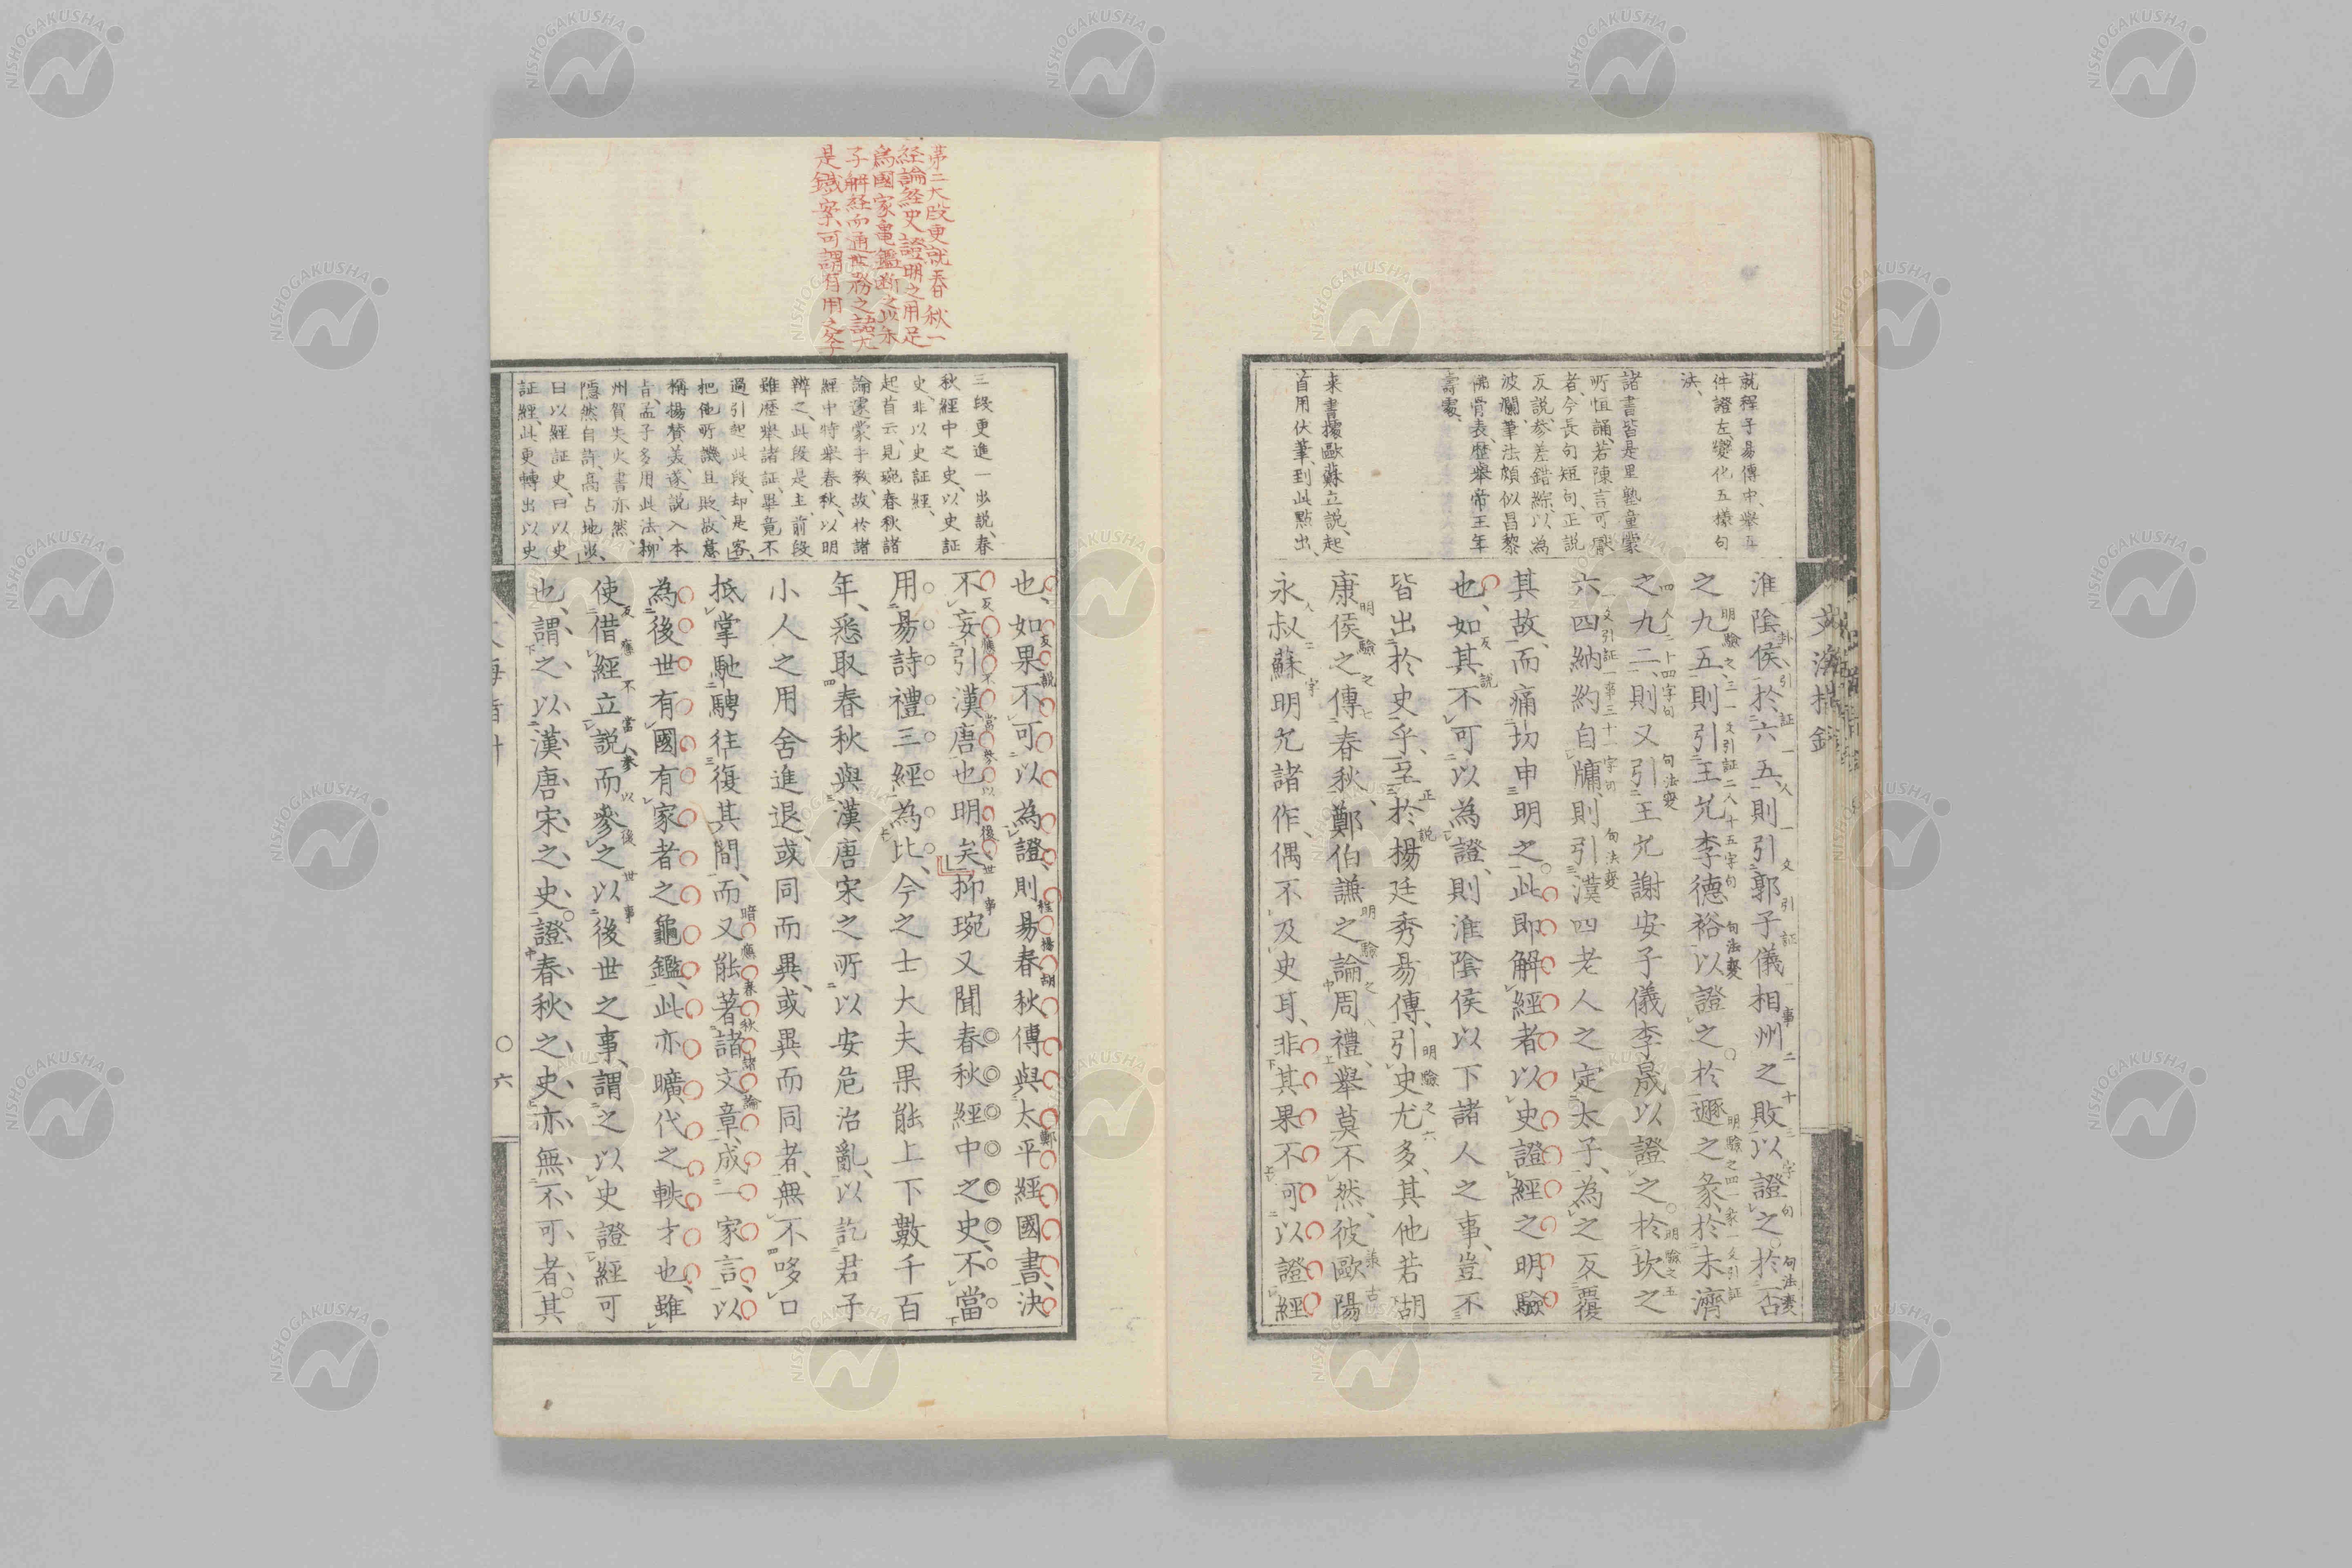 就程子易傳中、舉五
件證左、變化五樣句
法、
諸書皆是里塾童蒙
所恒誦、若陳言可厭
者、今長句短句、正説
反説、参差錯綜、以為
波瀾、筆法頗似昌黎
佛骨表、歴舉帝王年
壽處、
来書據歐蘇立説、起
首用伏筆、到此點出、
淮陰侯、於六五、則引郭子儀相州之敗以證之、於否
之九五、則引王允李德裕以證之、於遯之彖、於未濟
之九二、則又引王允謝安子儀李晟以證之、於坎之
六四納約自牖、則引漢四老人之定太子、為之反覆
其故、而痛切申明之、此即解經者以史證經之明驗
也、如其不可以為證、則淮陰侯以下諸人之事、豈不
皆出於史乎、至於揚廷秀易傳、引史尤多、其他若胡
康侯之傳春秋、鄭伯謙之論周禮、舉莫不然、彼歐陽
永叔蘇明允諸作、偶不及史耳、非其果不可以證經
第二大段更就春秋一
経論経史證明之用足
為國家龜鑑断之以朱
子解経而通世務之語尤
是鐵案、可謂有用之文字
三段更進一步説、春
秋經中之史、以史証
史、非以史証經、
起首云、見琬春秋諸
論、遂蒙手教、故於諸
經中特舉春秋、以明
辨之、此段是主、前段
雖歴舉諸証、畢竟不
過引起此段、却是客、
把他所譏且貶、故意
稱揚賛美、遂説入本
旨、孟子多用此法、柳
州賀失火書亦然、
隱然自許、高占地步、
曰以經証史、曰以史
証經、此更轉出以史
也、如果不可以為證、則易春秋傳與太平經國書、決
不妄引漢唐也明矣、抑琬又聞春秋經中之史、不當
用易詩禮三經為比、今之士大夫果能上下數千百
年、悉取春秋與漢唐宋之所以安危治亂、以訖君子
小人之用舍進退、或同而異、或異而同者、無不哆口
抵掌馳騁往復其間、而又能著諸文章、成一家言、以
為後世有國有家者之龜鑑、此亦曠代之軼才也、雖
使借經立説、而參之以後世之事、謂之以史證經可
也、謂之以漢唐宋之史、證春秋之史、亦無不可者、其
六